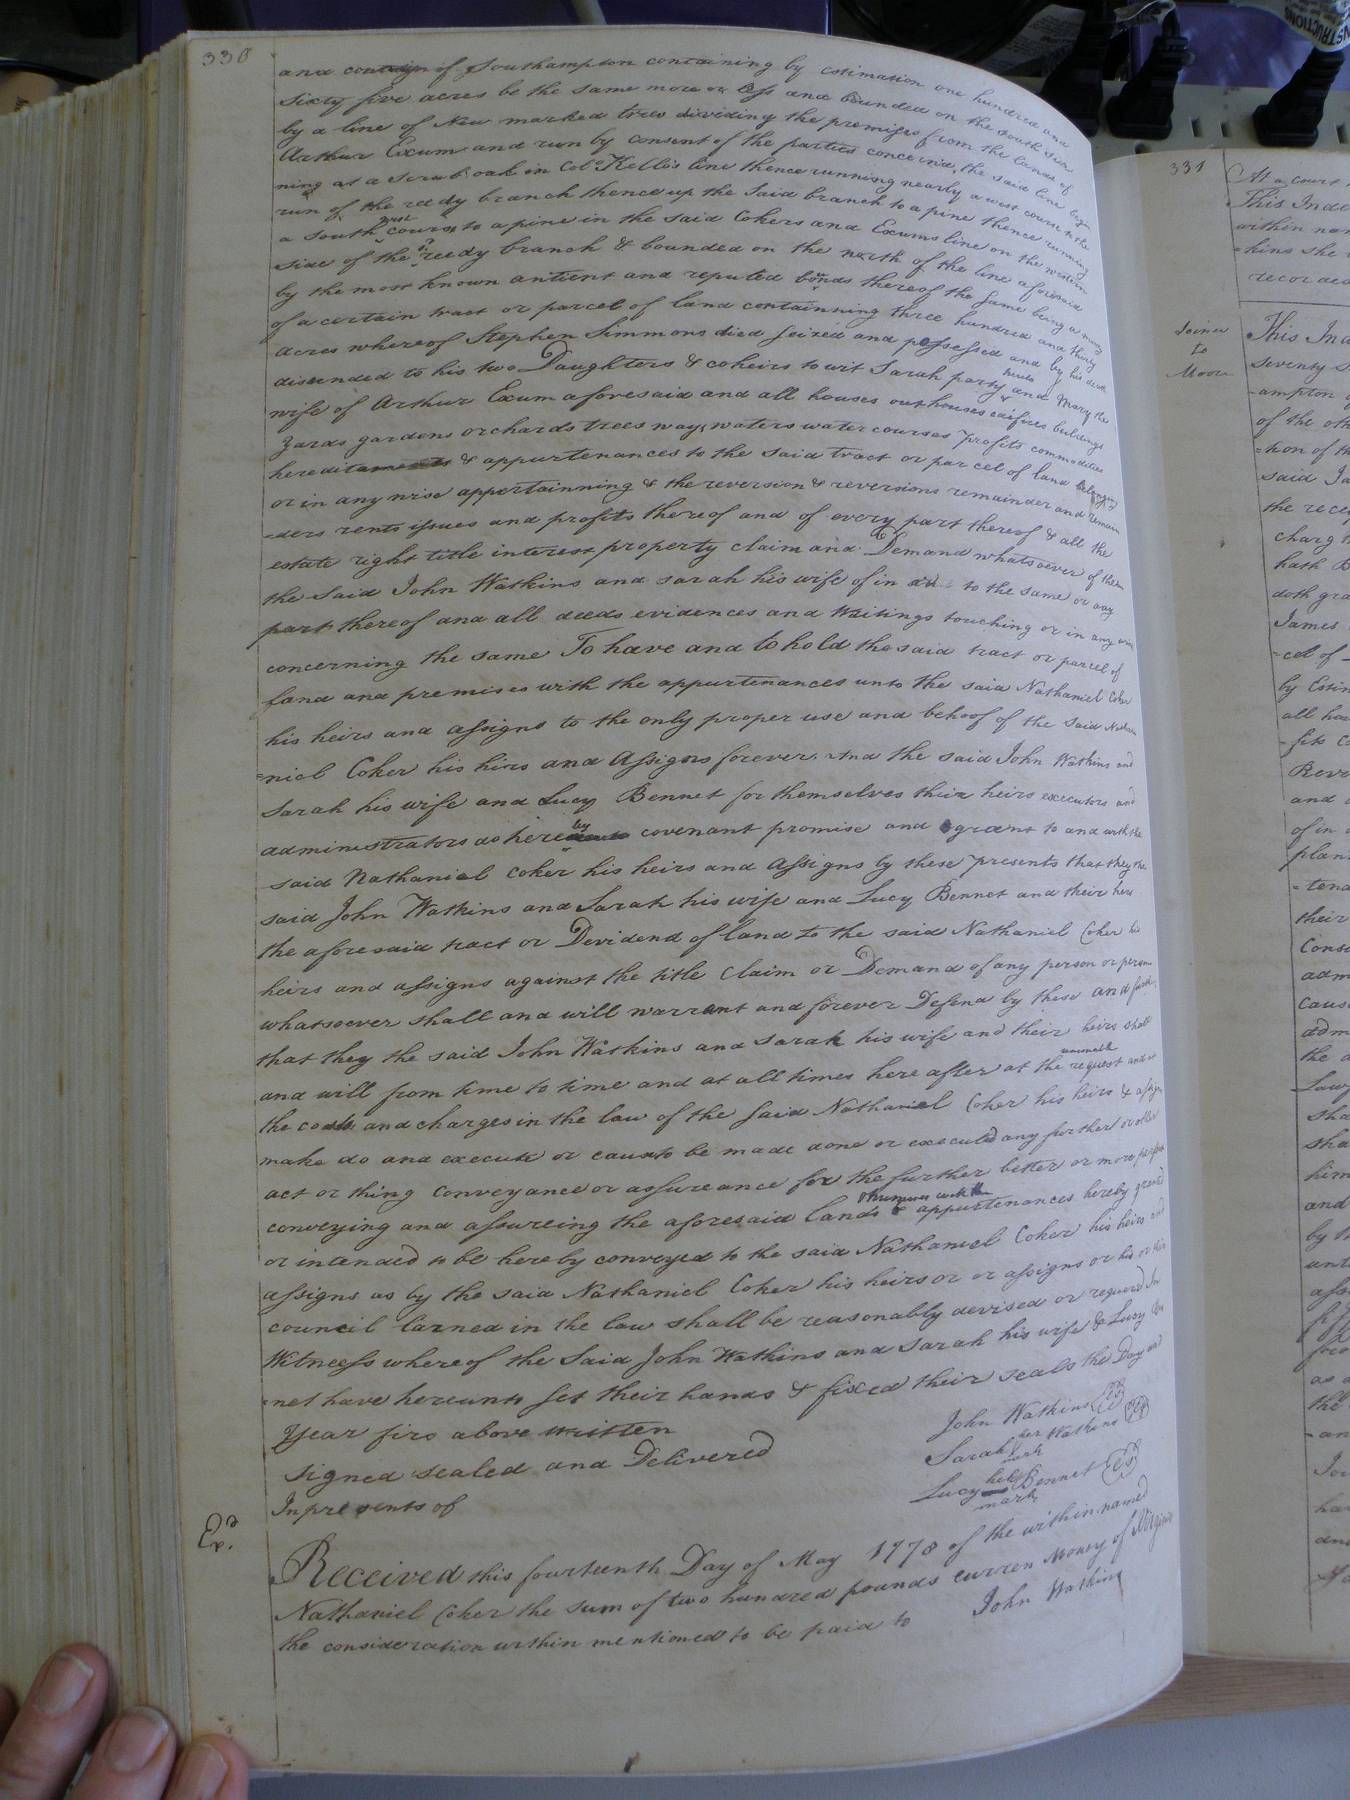 330
and county of Southampton containing by estimation one hundred and
sixty five acres be the same more or less and bounded on the south side
by a line of New marked trees dividing the premises from the lands of
Arthur Exum and run by consent of the parties concernd, the said line begin
ning at a scrub oak in Colo Kello's line thence running nearly a west course to the
run of the reedy branch thence up the said branch to a pine thence running
a south west course to a pine in the said Cokers and Exums line on the western
side of the reedy branch & bounded on the north of the line aforesaid
by the most known antient and reputed bounds thereof the same being a moiety
of a certain tract or parcel of land containning three hundred and thirty
acres whereof Stephen Simmons died seized and possessed and by his death
dissended to his two Daughters & coheirs to wit Sarah party hereto and Mary the
wife of Arthur Exum aforesaid and all houses outhouses edifices buildings
yards gardens orchards trees ways waters water courses profits commodities
hereditaments & appurtenances to the said tract or parcel of land belonging
or in any wise appertainning & the reversion & reversions remainder and remain
=ders rents issues and profits thereof and of every part thereof & all the
estate right title interest property claim and Demand whatsoever of them
the said John Watkins and Sarah his wife of in and to the same or any
part thereof and all deeds evidences and writings touching or in any wise
concerning the same To have and to hold the said tract or parcel of
land and premises with the appurtenances unto the said Nathaniel Coker
his heirs and assigns to the only proper use and behoof of the said Natha
=niel Coker his hires and Assigns forever. And the said John Watkins and
Sarah his wife and Lucy Bennet for themselves their heirs executors and
administrators do hereby covenant promise and grant to and with the
said Nathaniel Coker his heirs and Assigns by these presents that they the
said John Watkins and Sarah his wife and Lucy Bennet and their heirs
the aforesaid tract or Devidend of land to the said Nathaniel Coker his
heirs and assigns against the title Claim or Demand of any person or persons
whatsoever shall and will warrant and forever Defend by these and further
that they the said John Watkins and Sarah his wife and their heirs shall
and will from time to time and at all times here after at the request and at
the costs and charges in the law of the said Nathaniel Coker his heirs & assigns
make do and execute or cause to be made done or executed any further or other
act or thing conveyance or assureance for the further better or more perfect
conveying and assureing the aforesaid lands & premises with the appurtenances hereby granted
or intended to be hereby conveyed to the said Nathaniel Coker his heirs and
assigns as by the said Nathaniel Coker his heirs or or assigns or his or their
council larned in the law shall be reasonably devised or required In
Witness whereof the said John Watkins and Sarah his wife & Lucy Ben
=net have hereunto set their hands & fixed their seals the Day and
Year firs above written
signed sealed and Delivered
In presents of
John Watkins (LS)
Sarah her mark Watkins (LS)
Lucy her mark Bennet (LS)
Exd.
Received this fourteenth Day of May 1778 of the within named
Nathaniel Coker the sum of two hundred pounds curren Money of Virginia
the consideration within mentioned to be paid to
John Watkins
331
At a court
This Inde
within nam
=kins she
recorded
Joiner
to
Moore
This Ind
Seventy S
=ampton
of the oth
=tion of th
said Ja
the rece
charg
hath B
doth gra
James
=cel of
by Estim
all hou
=fits co
Rever
and
of in
plan
=tena
their
Cons
adm
cause
adm
the a
Law
sha
sha
him
and
by th
unt
ass
as
the
=an
Joi
ha
and